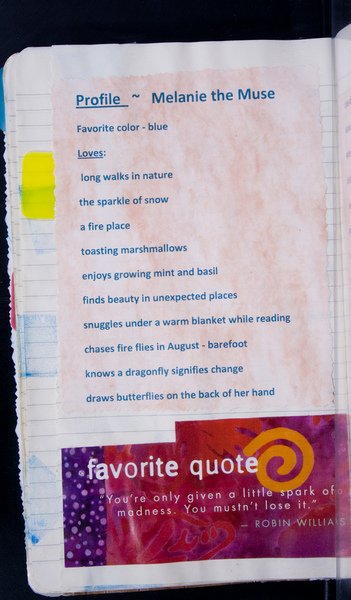 Profile ~ Melanie the Muse
Favorite color - blue
Loves:
long walks in nature
the sparkle of snow
a fire place
toasting marshmallows
enjoys growing mint and basil
finds beauty in unexpected places
snuggles under a warm blanket while reading
chases fire flies in August - barefoot
knows a dragonfly signifies change
draws butterflies on the back of her hand
favorite quote
"You're only given a little spark of
madness. You mustn't lose it."
— ROBIN WILLIAMS